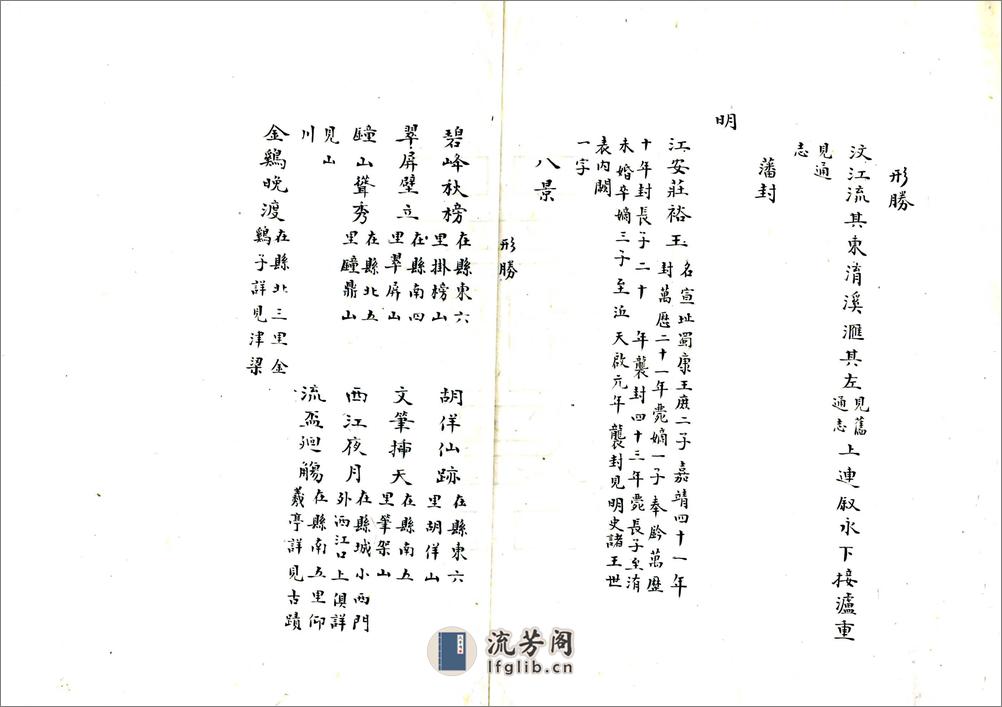 形勝
汶江流其東淯溪滙其左見舊
通志
上連叙永下接瀘重
見通
志
藩封
明
江安莊裕王名宣址蜀康王庶二子嘉靖四十一年
封萬歷二十一年薨嫡一子奉 萬歷
十年封長子二十 年襲封四十三年薨長子至淯
未婚卒嫡三子至 天啟元年襲封見明史諸王世
表內闕
一字
八景
形勝
碧峰秋榜在縣東六
里掛榜山
胡佯仙跡在縣東六
里胡佯山
翠屏壁立在縣南四
里翠屏山
文筆揷天在縣南五
里筆架山
山聳秀在縣北五
里 鼎山
西江夜月在縣城小西門
外西江口上俱詳
見山
川
流盃廻觴在縣南五里仰
羲亭詳見古蹟
金鷄晚渡在縣北三里金
鷄子詳見津梁
流芳阁
lfglib.cn